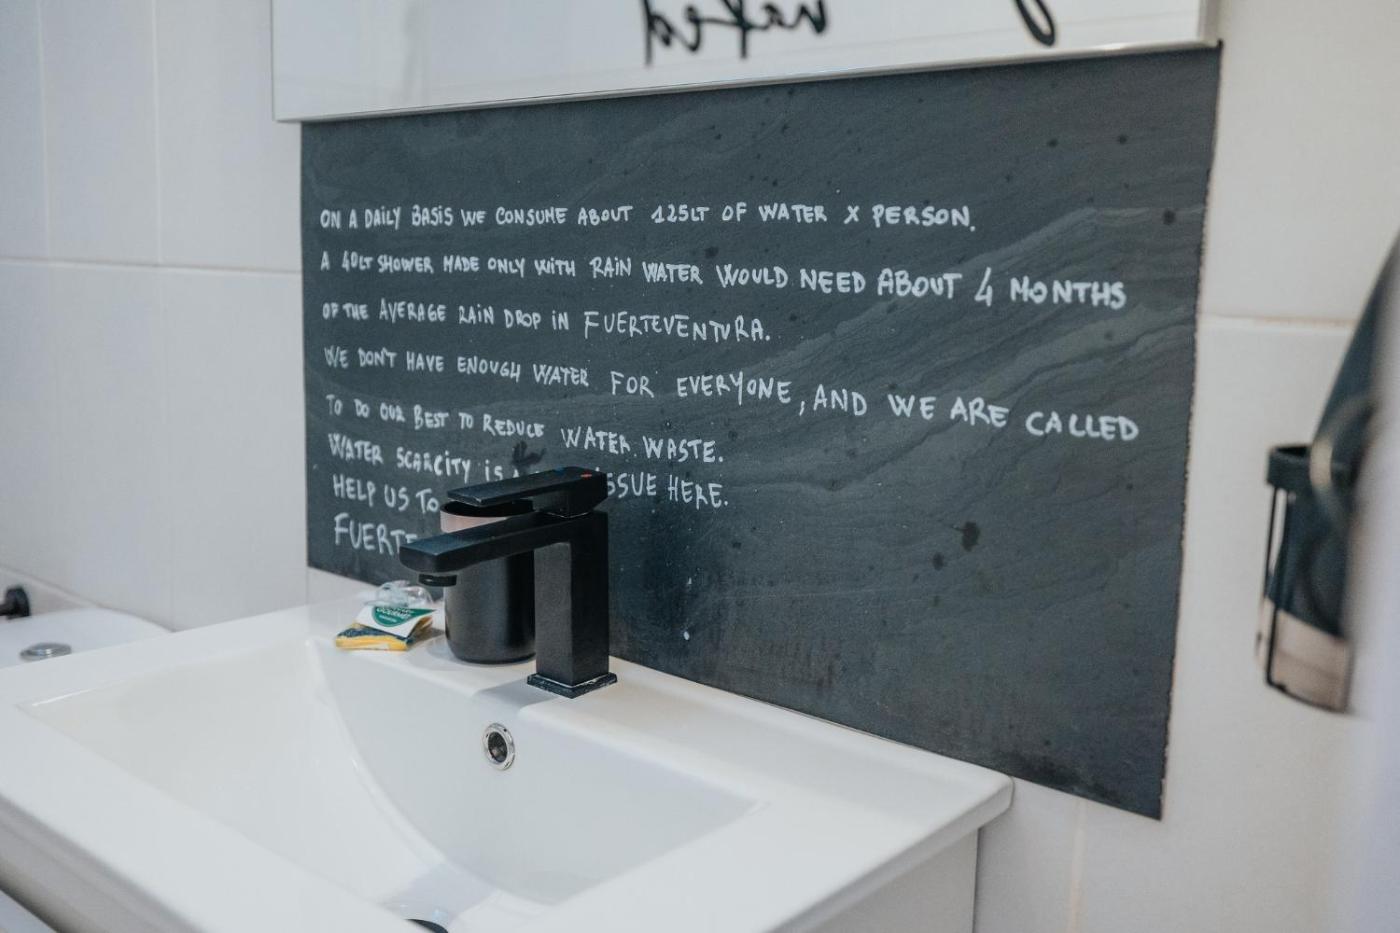 naked
ON A DAILY BASIS WE CONSUME ABOUT 125LT OF WATER X PERSON.
A 40LT SHOWER MADE ONLY WITH RAIN WATER WOULD NEED ABOUT 4 MONTHS
OF THE AVERAGE RAIN DROP IN FUERTEVENTURA.
WE DON'T HAVE ENOUGH WATER FOR EVERYONE, AND WE ARE CALLED
TO DO OUR BEST TO REDUCE WATER WASTE.
WATER SCARCITY IS HERE.
HELP US TO